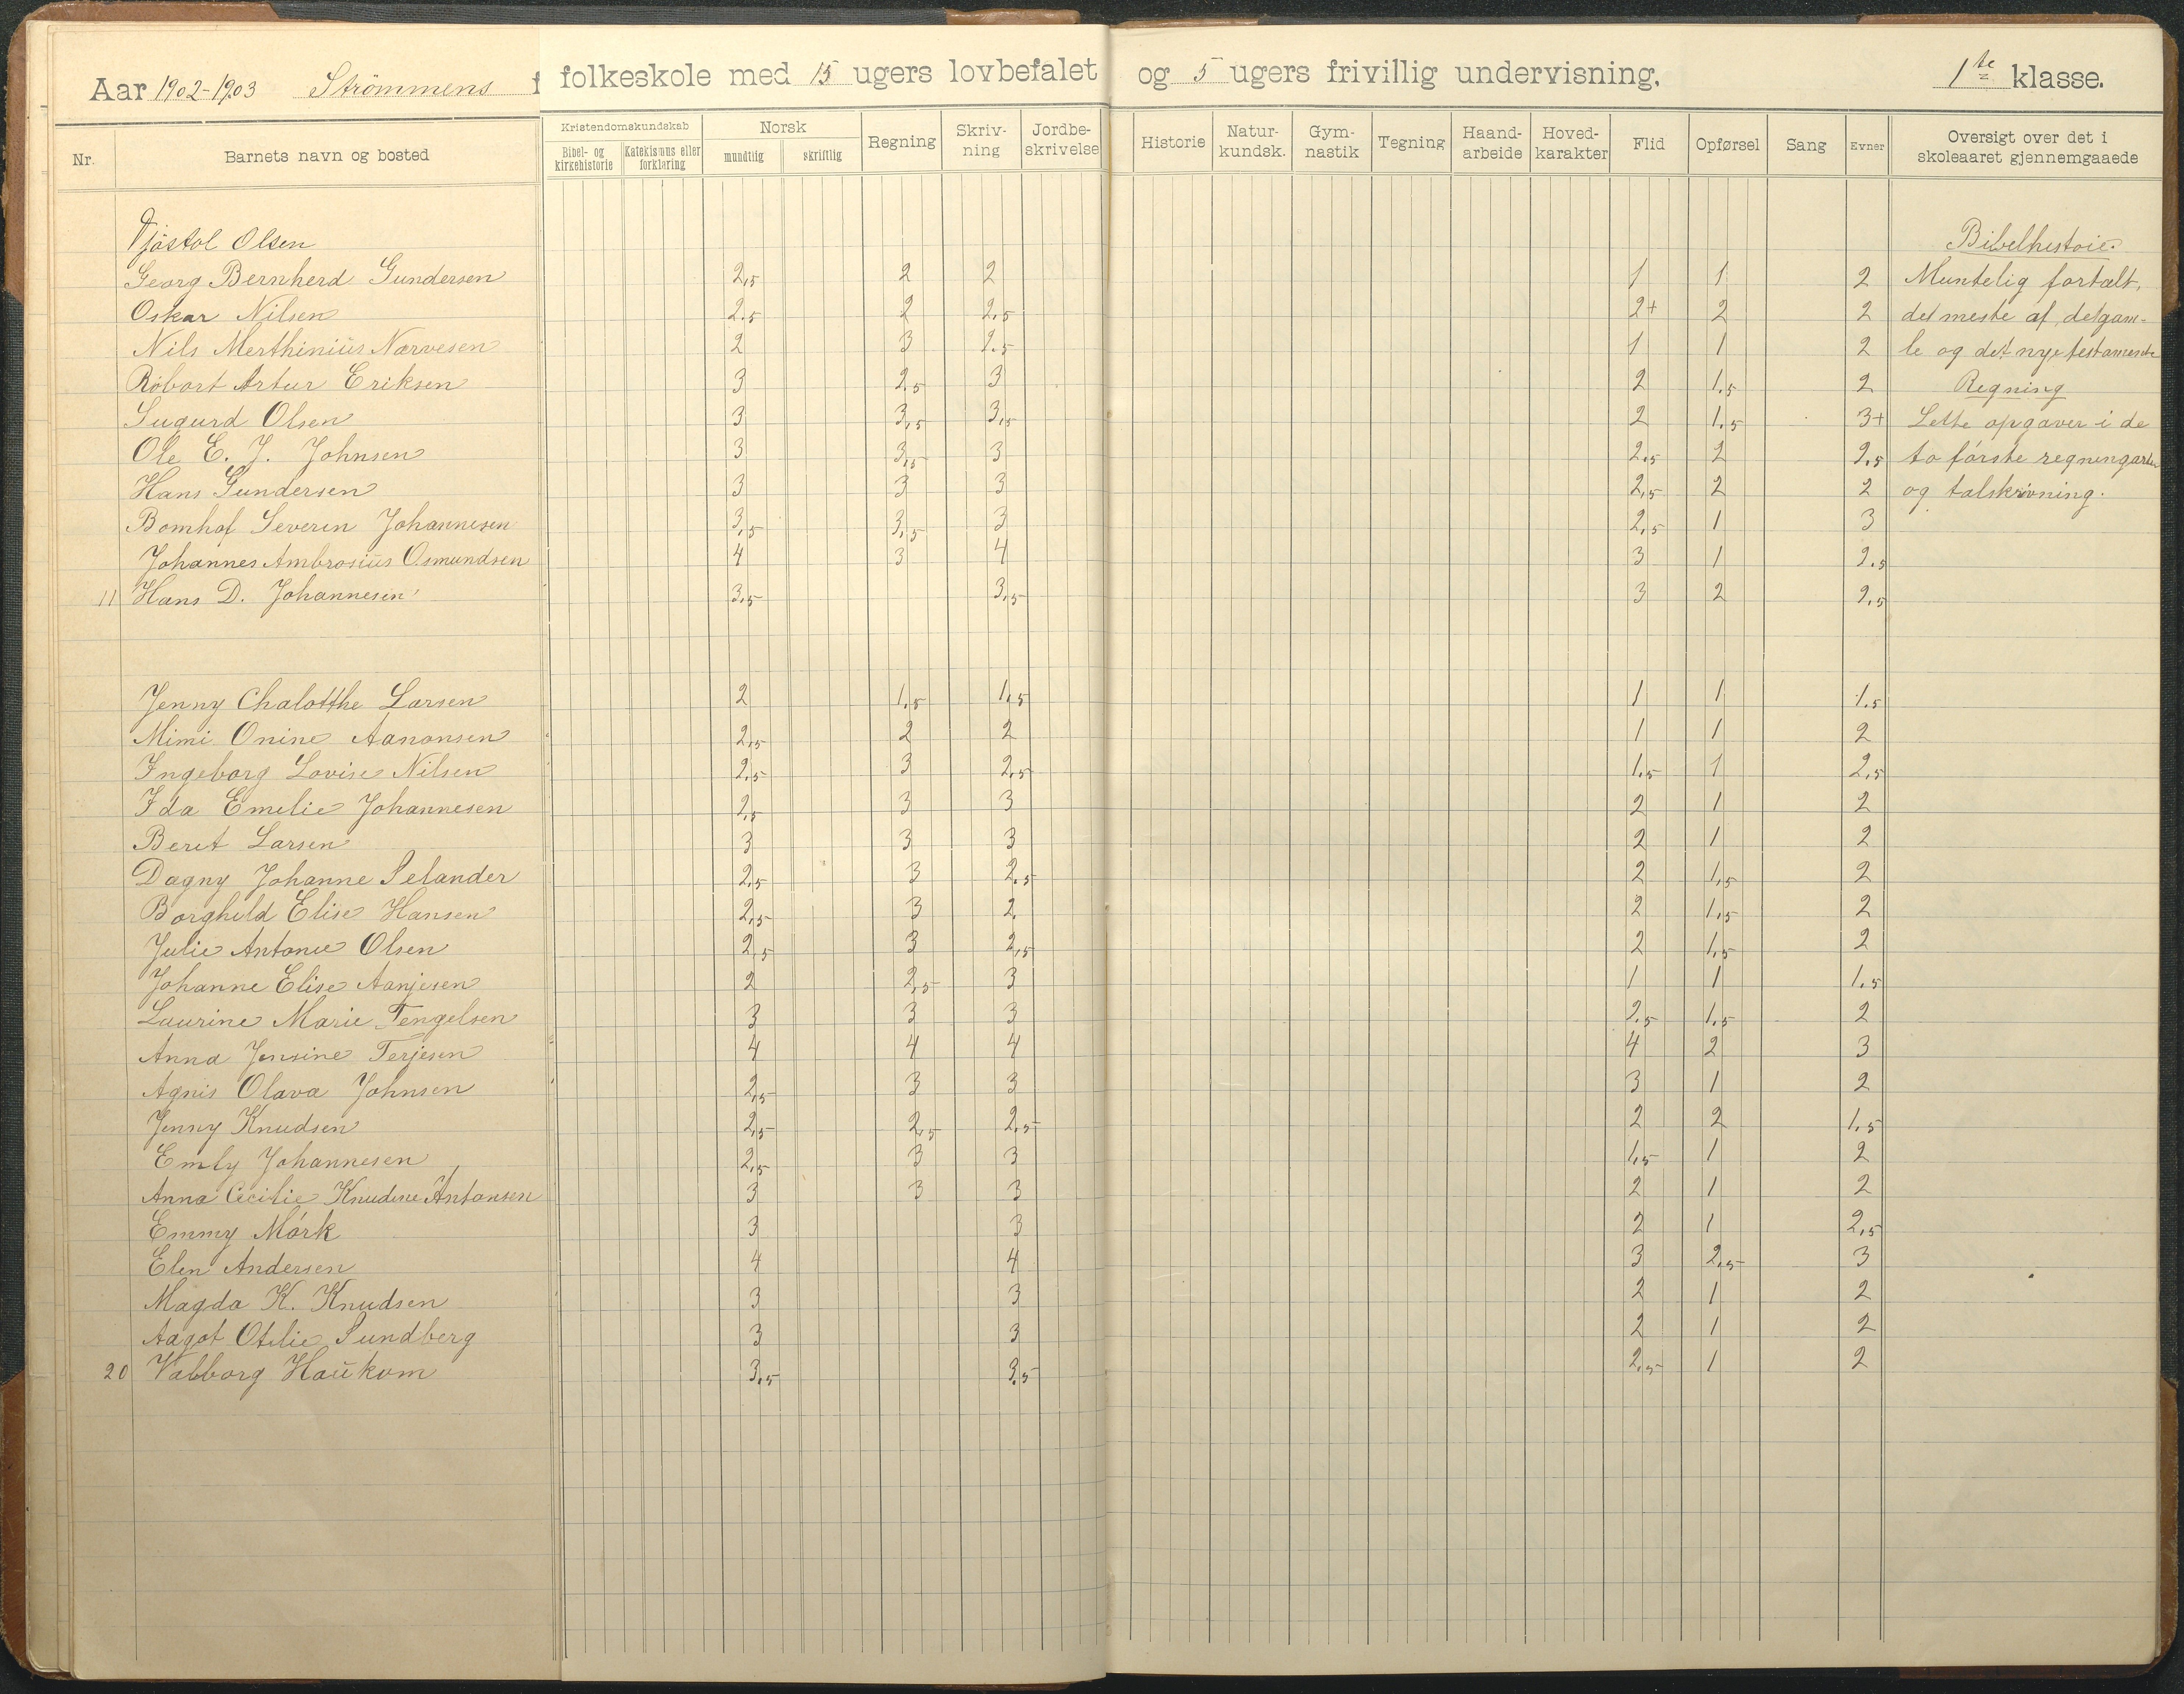 Aar 1902-1903 Strömmens folkeskole med 15 ugers lovbefalet og 5 ugers frivillig undervisning. 1te klasse.
Nr. Barnets navn og bosted Kristendomskundskab Bibel- og kirkehistorie Katekismus eller forklaring Norsk mundtlig skriftlig Regning Skriv-ning Jordbe-skrivelse Historie Natur-kundsk. Gym-nastik Tegning Haand-arbeide Hoved-karakter Flid Opførsel Sang Evner Oversigt over det i skoleaaret gjennemgaaede
Olsen Bibelhistoie.
Georg Bernherd Gundersen 2,5 2 2 1 1 2 Muntelig fortalt,
Oskar Nilsen 2.5 2 2,5 2+ 2 2 det meste af detgam-
Nils Merthinius Narvesen 2 3 2.5 1 1 2 le og det nye testamente
Robart Artur Eriksen 3 2,5 3 2 1,5 2 Regning
Sugurd Olsen 3 3,5 3,5 2 1,5 3+ Lette opgaver i de
Ole E. J. Johnsen 3 3,5 3 2.5 2 2,5 to första regningarter
Hans Gundersen 3 3 3 2,5 2 2 og talskrivning.
Bomhof Severin Johannesen 3,5 3,5 3 2,5 1 3
Johannes Ambrosius Osmundsen 4 3 4 3 1 2.5
11 Hans D. Johannesen 3,5 3,5 3 2 2,5
Jenny Chalotthe Larsen 2 1,5 1,5 1 1 1.5
Mimi Onine Aanonsen 2,5 2 2 1 1 2
Ingeborg Lovise Nilsen 2,5 3 2,5 1,5 1 2,5
Ida Emelie Johannesen 2,5 3 3 2 1 2
Beret Larsen 3 3 3 2 1 2
Dagny Johanne Selander 2,5 3 2.5 2 1,5 2
Borghild Elise Hansen 2,5 3 2 2 1,5 2
Julie Antonie Olsen 2,5 3 2,5 2 1,5 2
Johanne Elise Aanjesen 2 2,5 3 1 1 1,5
Laurine Marie Tengelsen 3 3 3 2,5 1,5 2
Anna Jensine Terjesen 4 4 4 4 2 3
Agnis Olava Johnsen 2,5 3 3 3 1 2
Jenny Knudsen 2,5 2,5 2,5 2 2 1,5
Emly Johannesen 2,5 3 3 1,5 1 2
Anna Cecilie Knudine Antonsen 3 3 3 2 1 2
Emmy Mörk 3 3 2 1 2,5
Elen Andersen 4 4 3 2,5 3
Magda K. Knudsen 3 3 2 1 2
Aagot Otilie Sundberg 3 3 2 1 2
20 Valborg Haukom 3,5 3,5 2,5 1 2